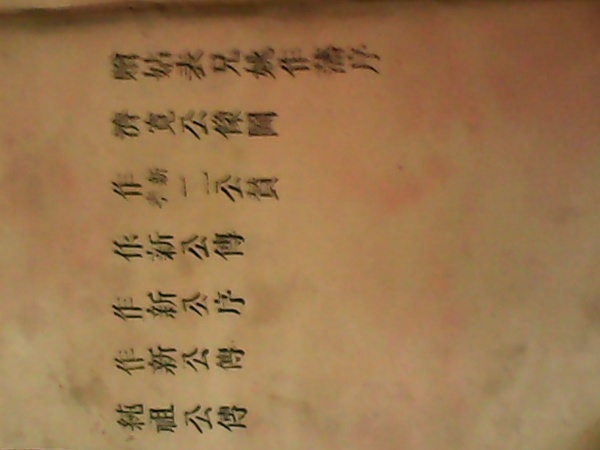 贈姑表兄姚作藩序
濟寬公像圖
作新二公贊
作新公傳
作新公序
作新公傳
純祖公傳